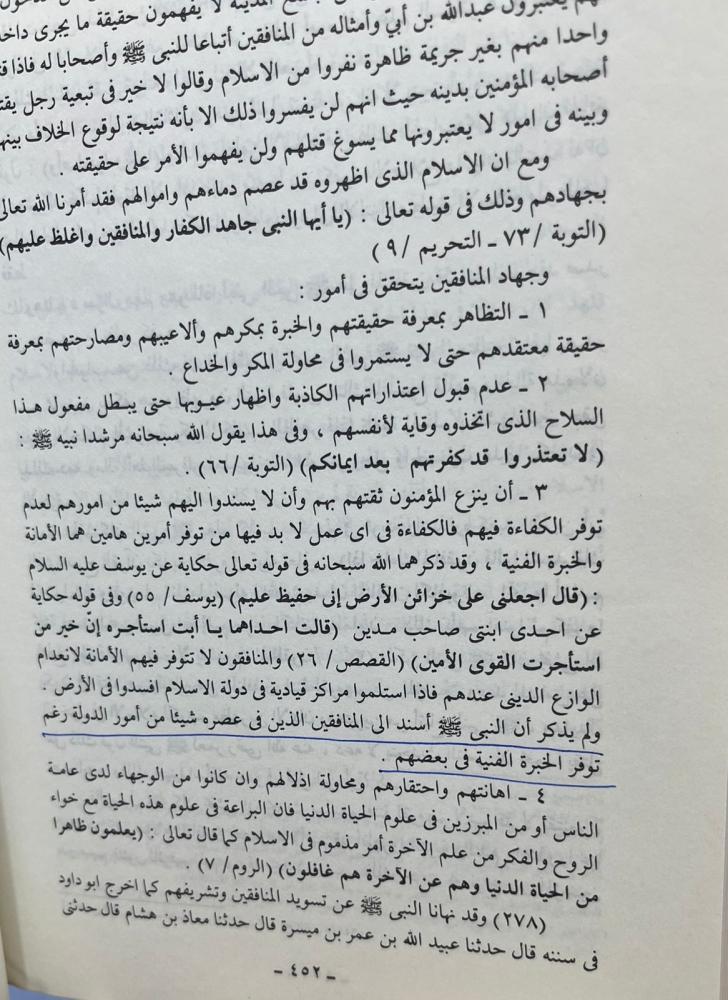 يعتبرون عبدالله بن أبيّ وأمثاله من المنافقين أتباعا للنبى ﷺ وأصحابا له فاذا
واحدا منهم بغير جريمة ظاهرة نفروا من الاسلام وقالوا لا خير فى تبعية رجل
أصحابه المؤمنين بدينه حيث انهم لن يفسروا ذلك الا بأنه نتيجة لوقوع الخلاف
وبينه فى امور لا يعتبرونها مما يسوغ قتلهم ولن يفهموا الأمر على حقيقته .
ومع ان الاسلام الذى اظهروه قد عصم دماءهم واموالهم فقد أمرنا الله تعالى
بجهادهم وذلك فى قوله تعالى : (يا أيها النبى جاهد الكفار والمنافقين واغلظ عليهم)
(التوبة /٧٣ ـ التحريم /٩ )
وجهاد المنافقين يتحقق فى أمور :
١ ـ التظاهر بمعرفة حقيقتهم والخبرة بمكرهم وألاعيبهم ومصارحتهم بمعرفة
حقيقة معتقدهم حتى لا يستمروا فى محاولة المكر والخداع .
٢ ـ عدم قبول اعتذاراتهم الكاذبة واظهار عيوبها حتى يبطل مفعول هذا
السلاح الذى اتخذوه وقاية لأنفسهم ، وفى هذا يقول الله سبحانه مرشدا نبيه ﷺ :
( لا تعتذروا قد كفرتهم بعد ايمانكم) (التوبة /٦٦) .
٣ ـ أن ينزع المؤمنون ثقتهم بهم وأن لا يسندوا اليهم شيئا من امورهم لعدم
توفر الكفاءة فيهم فالكفاءة فى اى عمل لا بد فيها من توفر أمرين هامين هما الأمانة
والخبرة الفنية ، وقد ذكرهما الله سبحانه فى قوله تعالى حكاية عن يوسف عليه السلام
: (قال اجعلنى على خزائن الأرض إنى حفيظ عليم) (يوسف/ ٥٥) وفى قوله حكاية
عن احدى ابنتى صاحب مدين (قالت احداهما يا أبت استأجره إنّ خير من
استأجرت القوى الأمين) (القصص/ ٢٦) والمنافقون لا تتوفر فيهم الأمانة لانعدام
الوازع الدينى عندهم فاذا استلموا مراكز قيادية فى دولة الاسلام افسدوا فى الأرض .
ولم يذكر أن النبى ﷺ أسند الى المنافقين الذين فى عصره شيئا من أمور الدولة رغم
توفر الخبرة الفنية فى بعضهم .
٤ ـ اهانتهم واحتقارهم ومحاولة اذلالهم وان كانوا من الوجهاء لدى عامة
الناس أو من المبرزين فى علوم الحياة الدنيا فان البراعة فى علوم هذه الحياة مع خواء
الروح والفكر من علم الآخرة أمر مذموم فى الاسلام كما قال تعالى : (يعلمون ظاهرا
من الحياة الدنيا وهم عن الآخرة هم غافلون) (الروم/ ٧) .
(٢٧٨) وقد نهانا النبى ﷺ عن تسويد المنافقين وتشريفهم كما اخرج ابو داود
فى سننه قال حدثنا عبيد الله بن عمر بن ميسرة قال حدثنا معاذ بن هشام قال حدثنى
ـ ٤٥٢ ـ